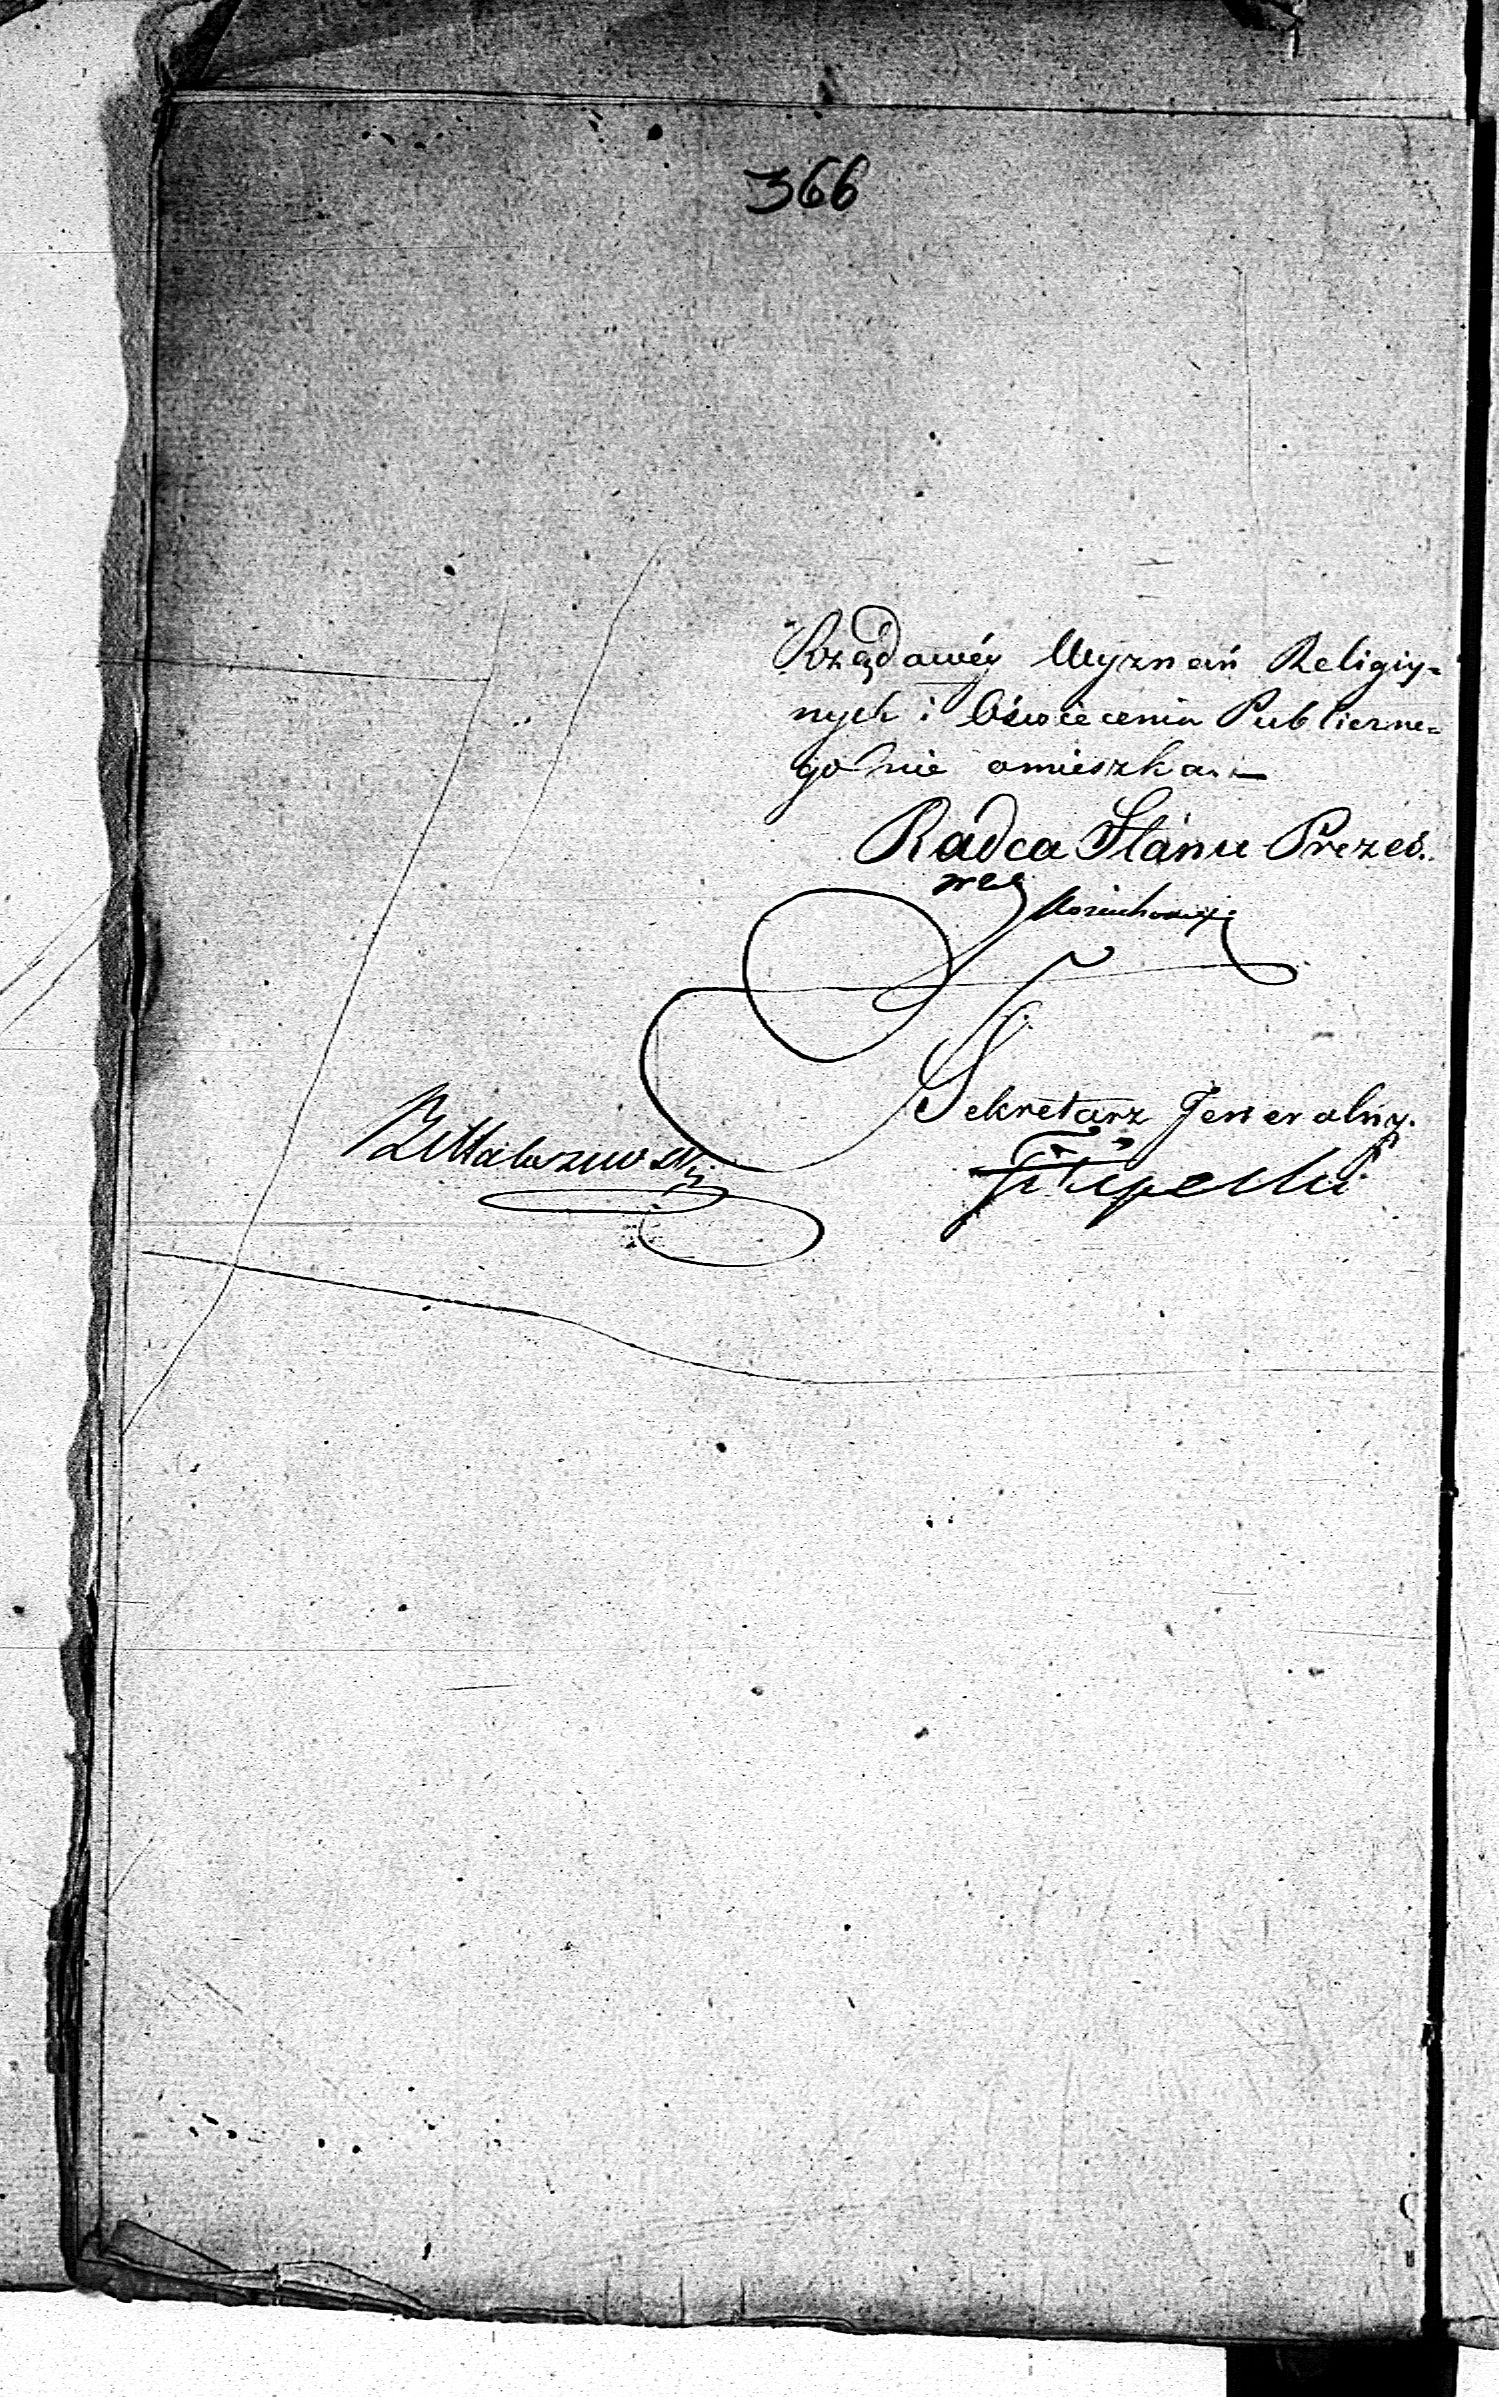 366
Rządowéy Wyznań Religiy=
nych i Oświecenia Publiczne=
go nie omieszka.—
Radca Stanu Prezes.
Sekretarz Jeneralny.
Filipecki